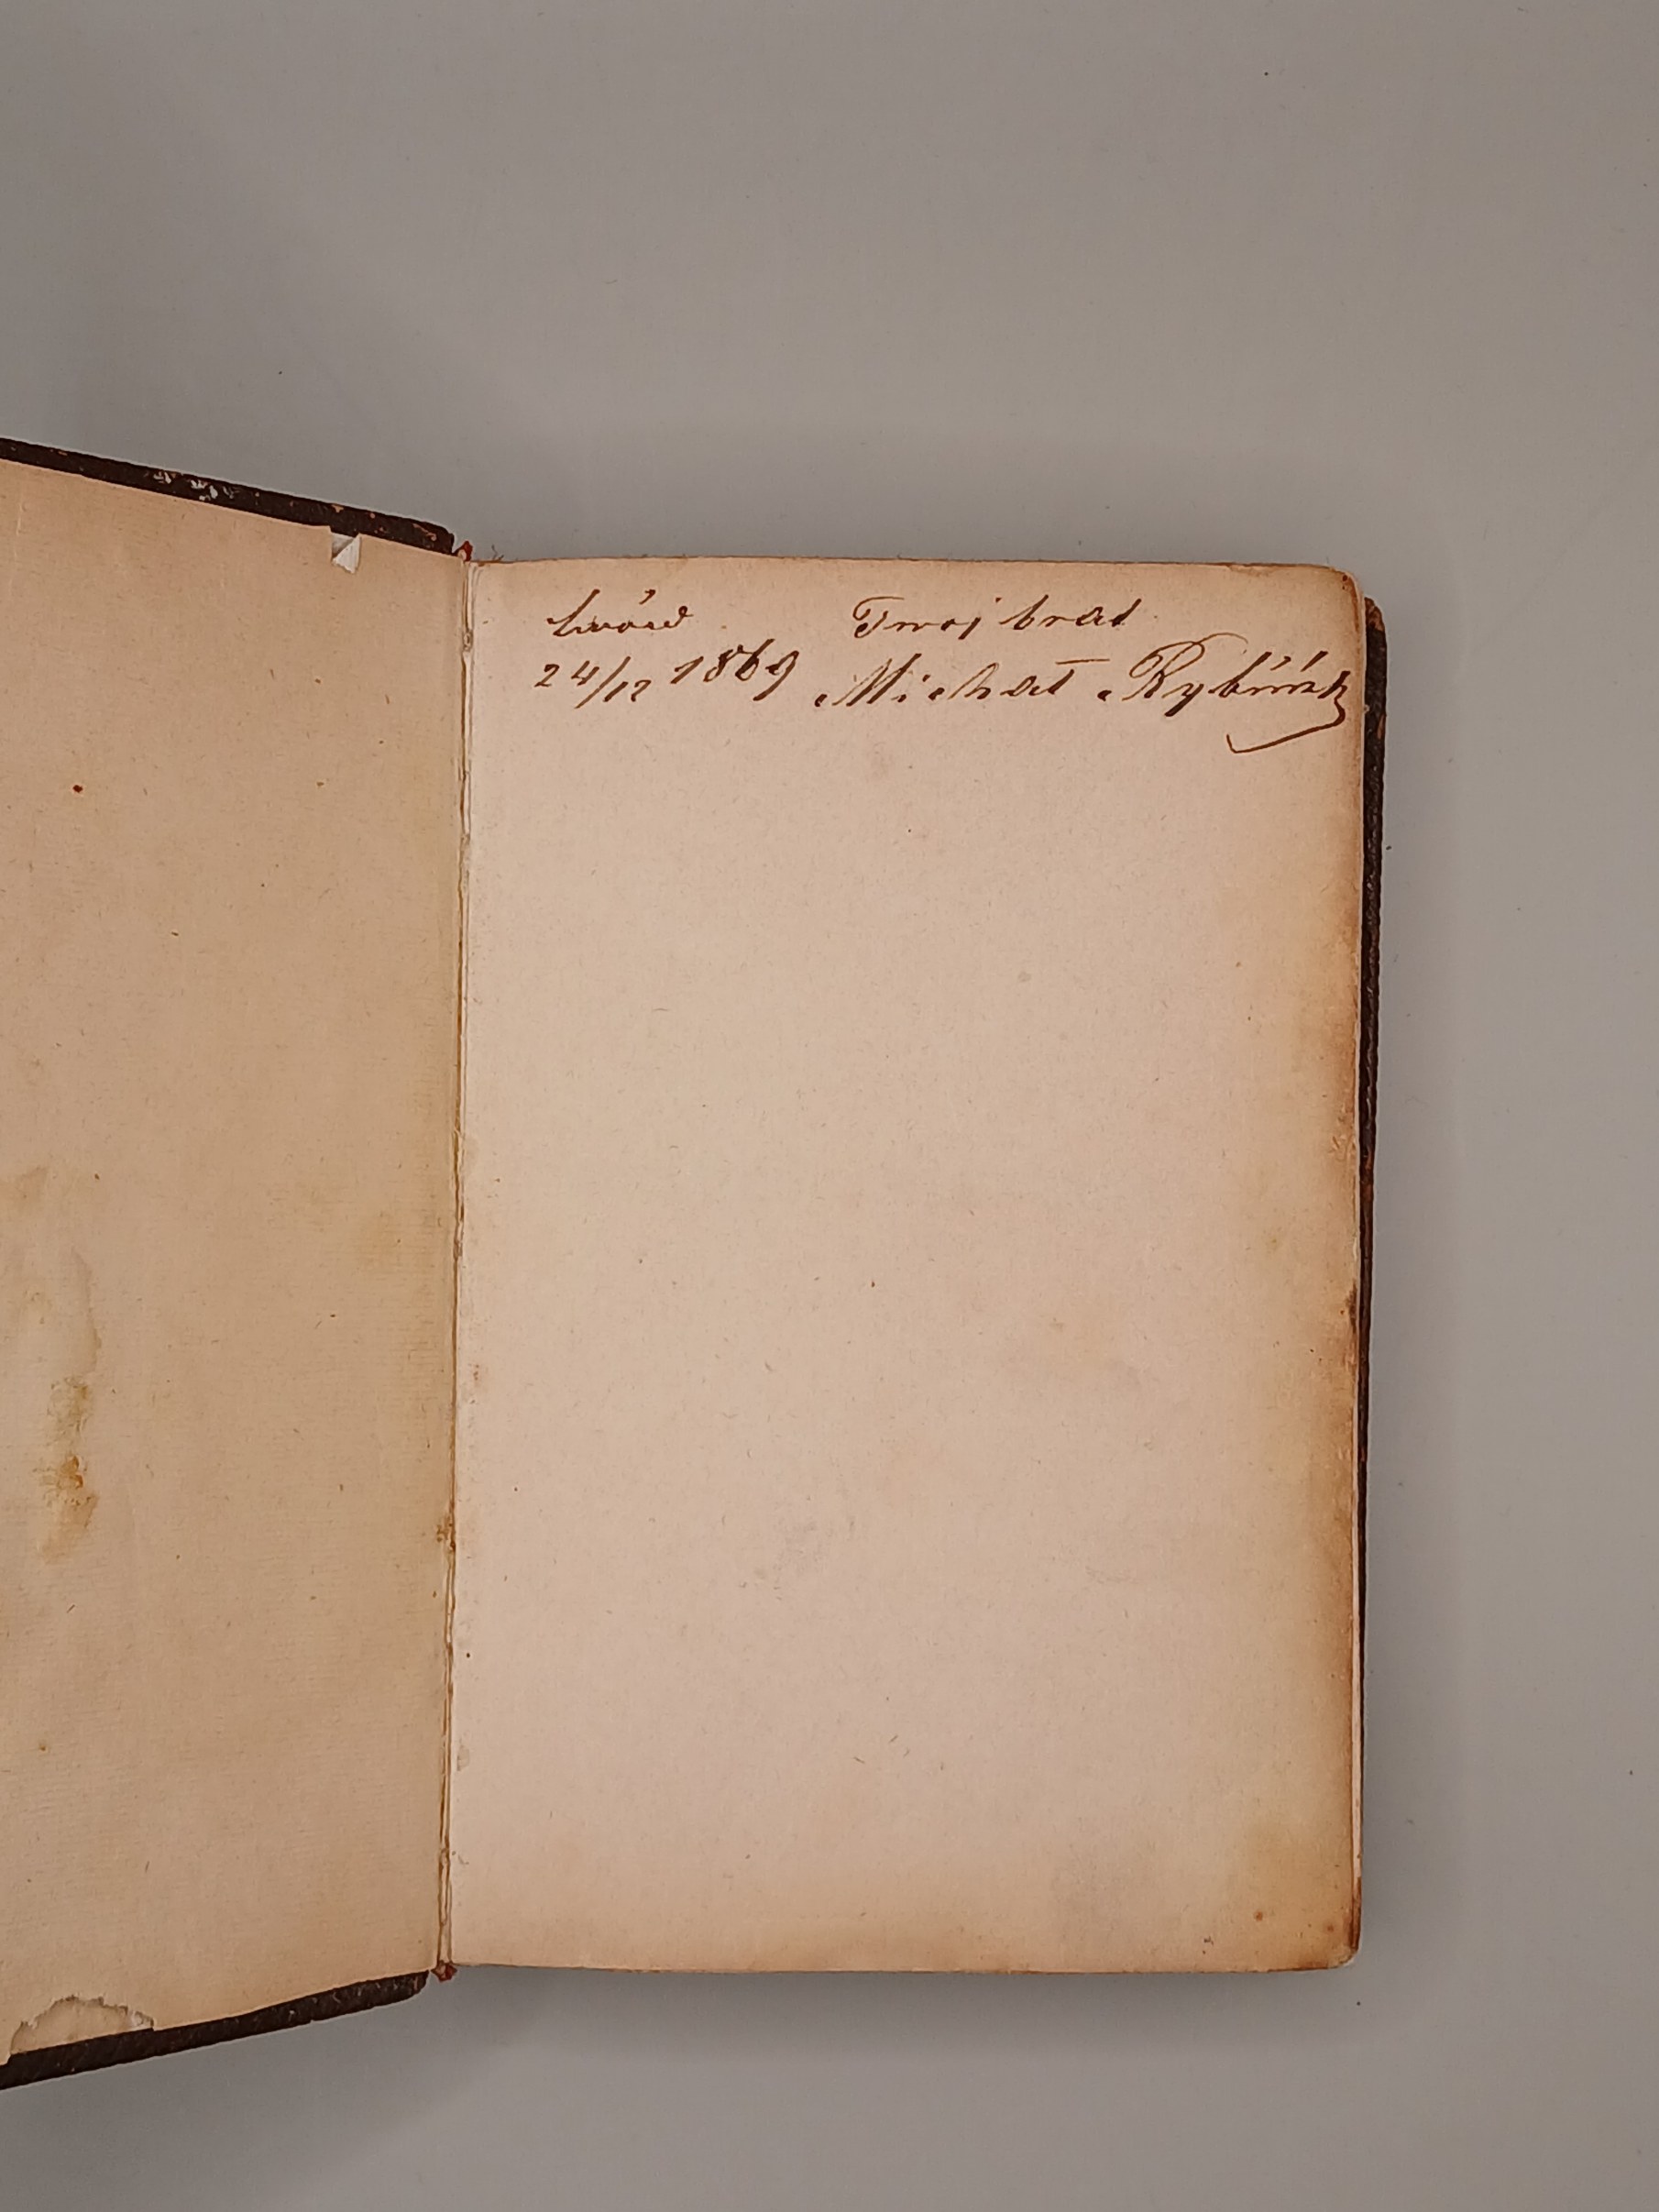 Lwów Twoj brat
24/12 1869 Michał Rybiński